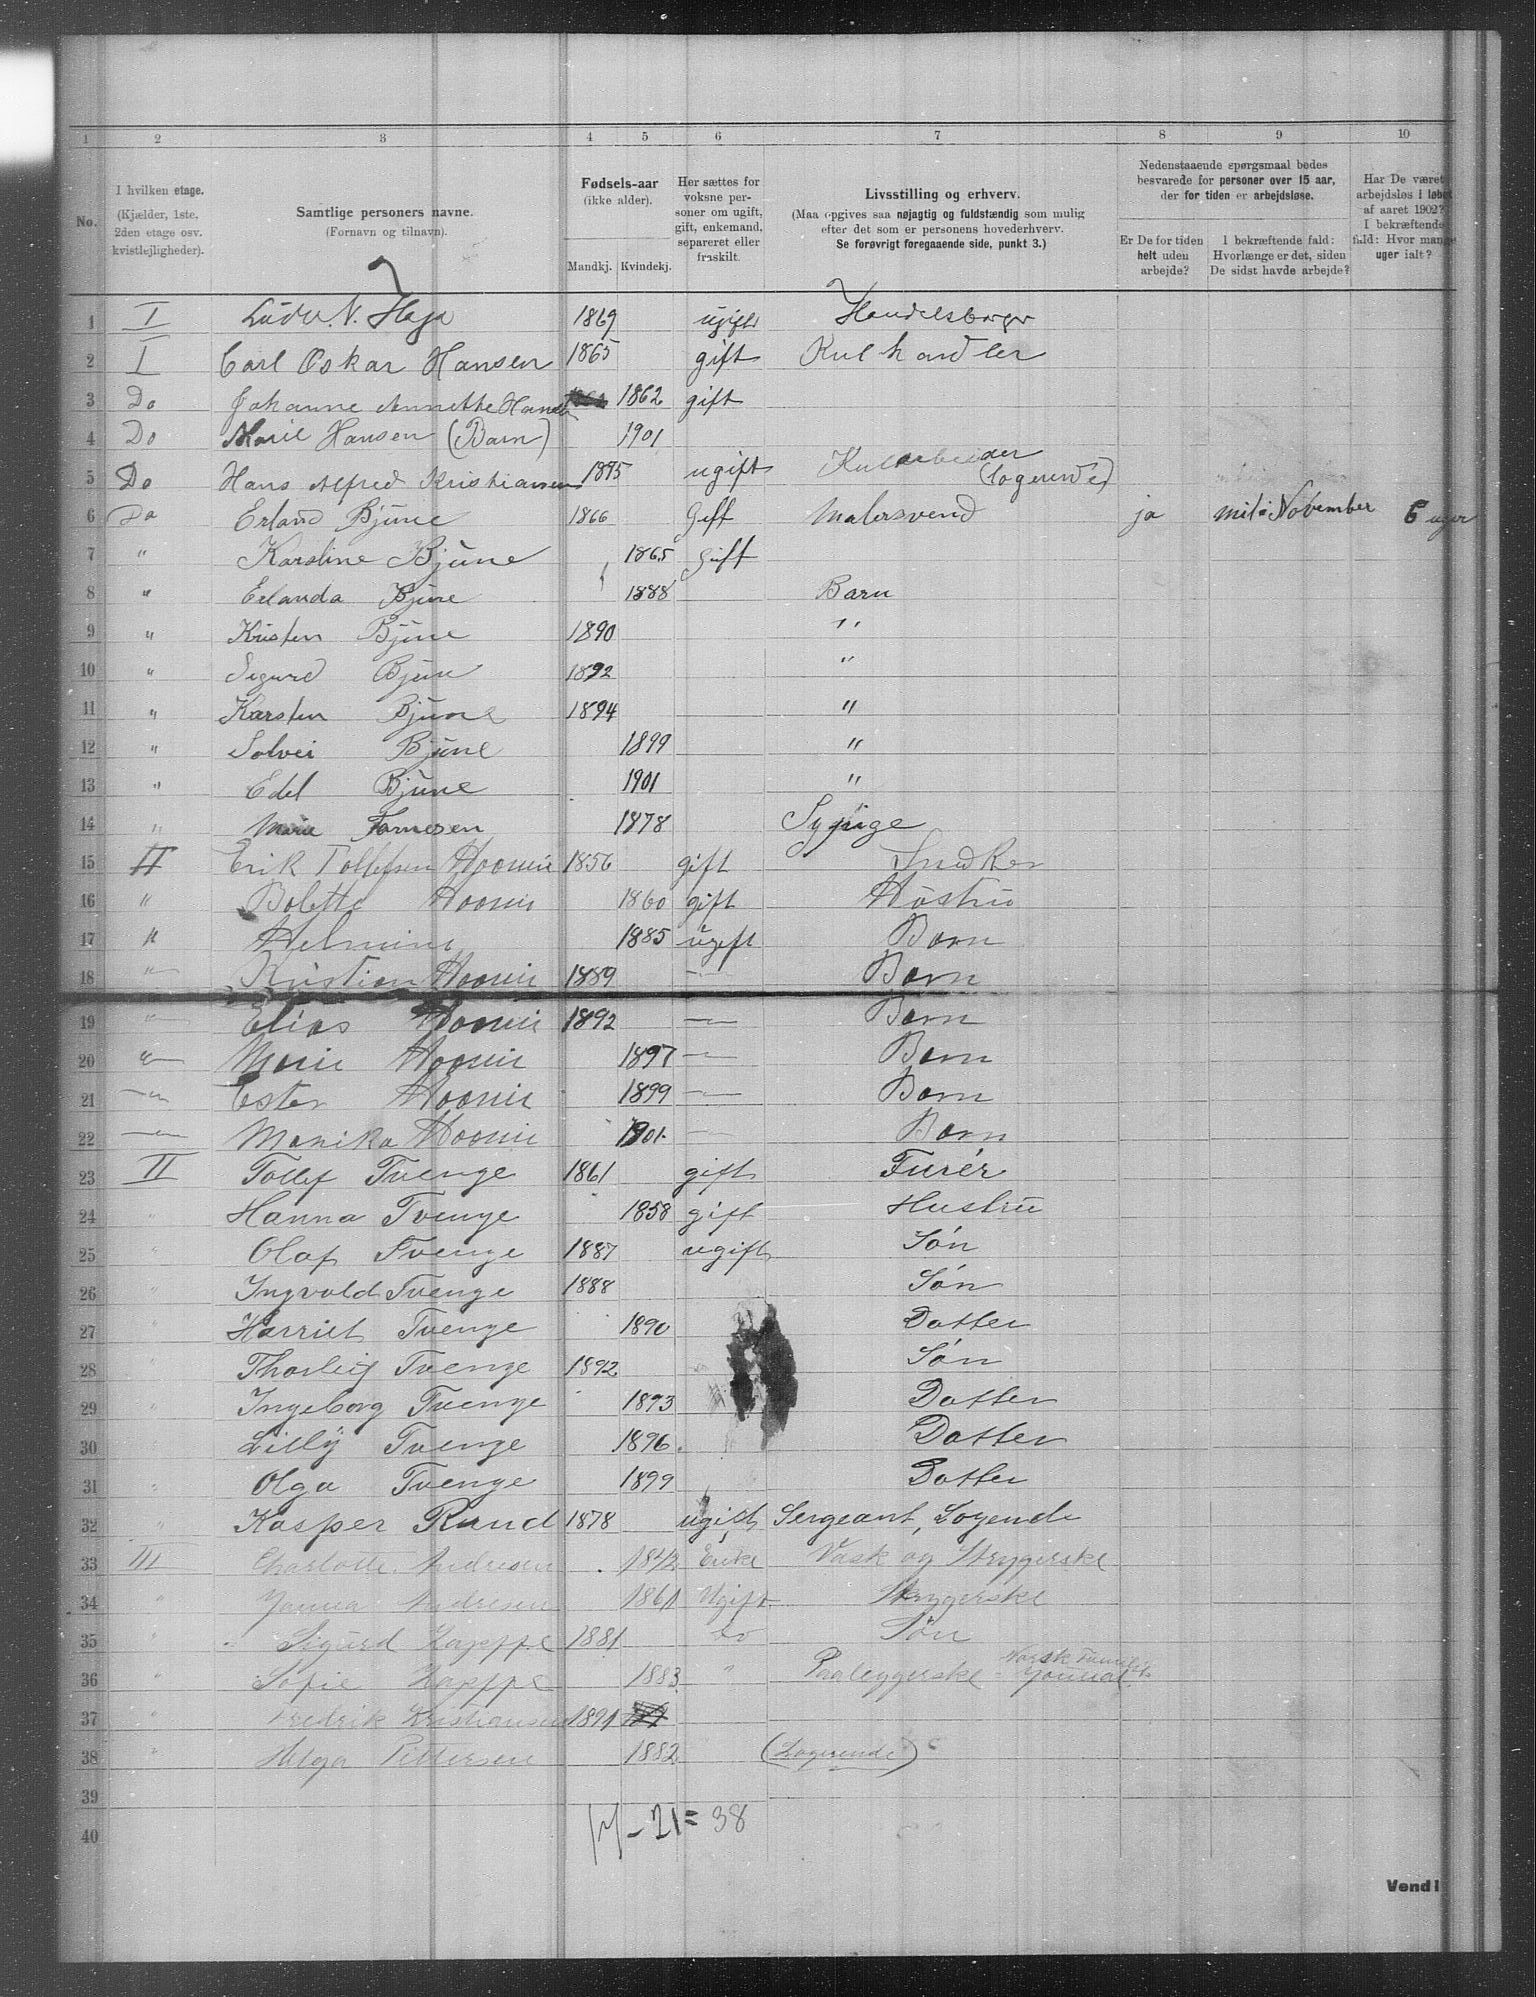 1 2 3 4 5 6 7 8 9 10
No.
I hvilken etage.
(Kjælder, 1ste,
2den etage osv.
kvistlejligheder).
Samtlige personers navne.
(Fornavn og tilnavn).
Fødsels-aar
(ikke alder).
Mandkj. Kvindekj.
Her sættes for
voksne per-
soner om ugift,
gift, enkemand,
separeret eller
fraskilt.
Livsstilling og erhverv.
(Maa opgives saa nøjagtig og fuldstændig som mulig
efter det som er personens hovederhverv.
Se forøvrigt foregaaende side, punkt 3.)
Nedenstaaende spørgsmaal bedes
besvarede for personer over 15 aar,
der for tiden er arbejdsløse.
Er De for tiden
helt uden
arbejde?
I bekræftende fald:
Hvorlænge er det, siden
De sidst havde arbejde?
Har De været
arbejdsløs i løbet
af aaret 1902?
I bekræftende
fald: Hvor mange
uger ialt?
1 I N. Haja 1869 ugift Handelsborger
2 I Carl Oskar Hansen 1865 gift Kulhandler
3 Do Johanne Annette Hansen 1862 gift
4 Do Marie Hansen (Barn) 1901
5 Do Hans Alfred Kristiansen 1875 ugift Kularbeider (logerende)
6 Do Erland Bjüne 1866 Gift Malersvend ja mit i November 6 uger
7 " Karstine Bjüne 1865 Gift
8 " Erlanda Bjüne 1888 Barn
9 " Kristen Bjüne 1890 "
10 " Sigurd Bjüne 1892 "
11 " Karsten Bjüne 1894 "
12 " Solvei Bjüne 1899 "
13 " Edel Bjüne 1901 "
14 " Marie Fornesen 1878 Sypige
15 II Erik Tollefsen Hoonir 1856 gift Snedker
16 " Bolette Hoonir 1860 gift Hüstrü
17 " Helmine 1885 ugift Barn
18 " Kristian Hoonir 1889 — Barn
19 " Elias Hoonir 1892 — Barn
20 " Marie Hoonir 1897 — Barn
21 " Ester Hoonir 1899 — Barn
22 " Monika Hoonir 1901 — Barn
23 II Tollef Tvenge 1861 gift Furér
24 " Hanna Tvenge 1858 gift Hustrü
25 " Olaf Tvenge 1887 ugift Søn
26 " Ingvald Tvenge 1888 Søn
27 " Harriet Tvenge 1890 Datter
28 " Thorleif Tvenge 1892 Søn
29 " Ingeborg Tvenge 1893 Datter
30 Lilly Tvenge 1896 Datter
31 " Olga Tvenge 1899 Datter
32 " Kasper Rund 1878 ugift Sergeant, Logende
33 III Charlotte Andresen 1842 Enke Vask og Strygerske
34 " Janna Andresen 1861 Ugift Strygerske
35 " Sigurd Kappfe 1881 do Søn
36 " Sofie Kappfe 1883 " Paaleggerske Norsk Familie Journal
37 " Fredrik Kristiansen 1891
38 " Helga Pettersen 1882 (Logerende)
39
40
17 – 21 = 38
Vend!